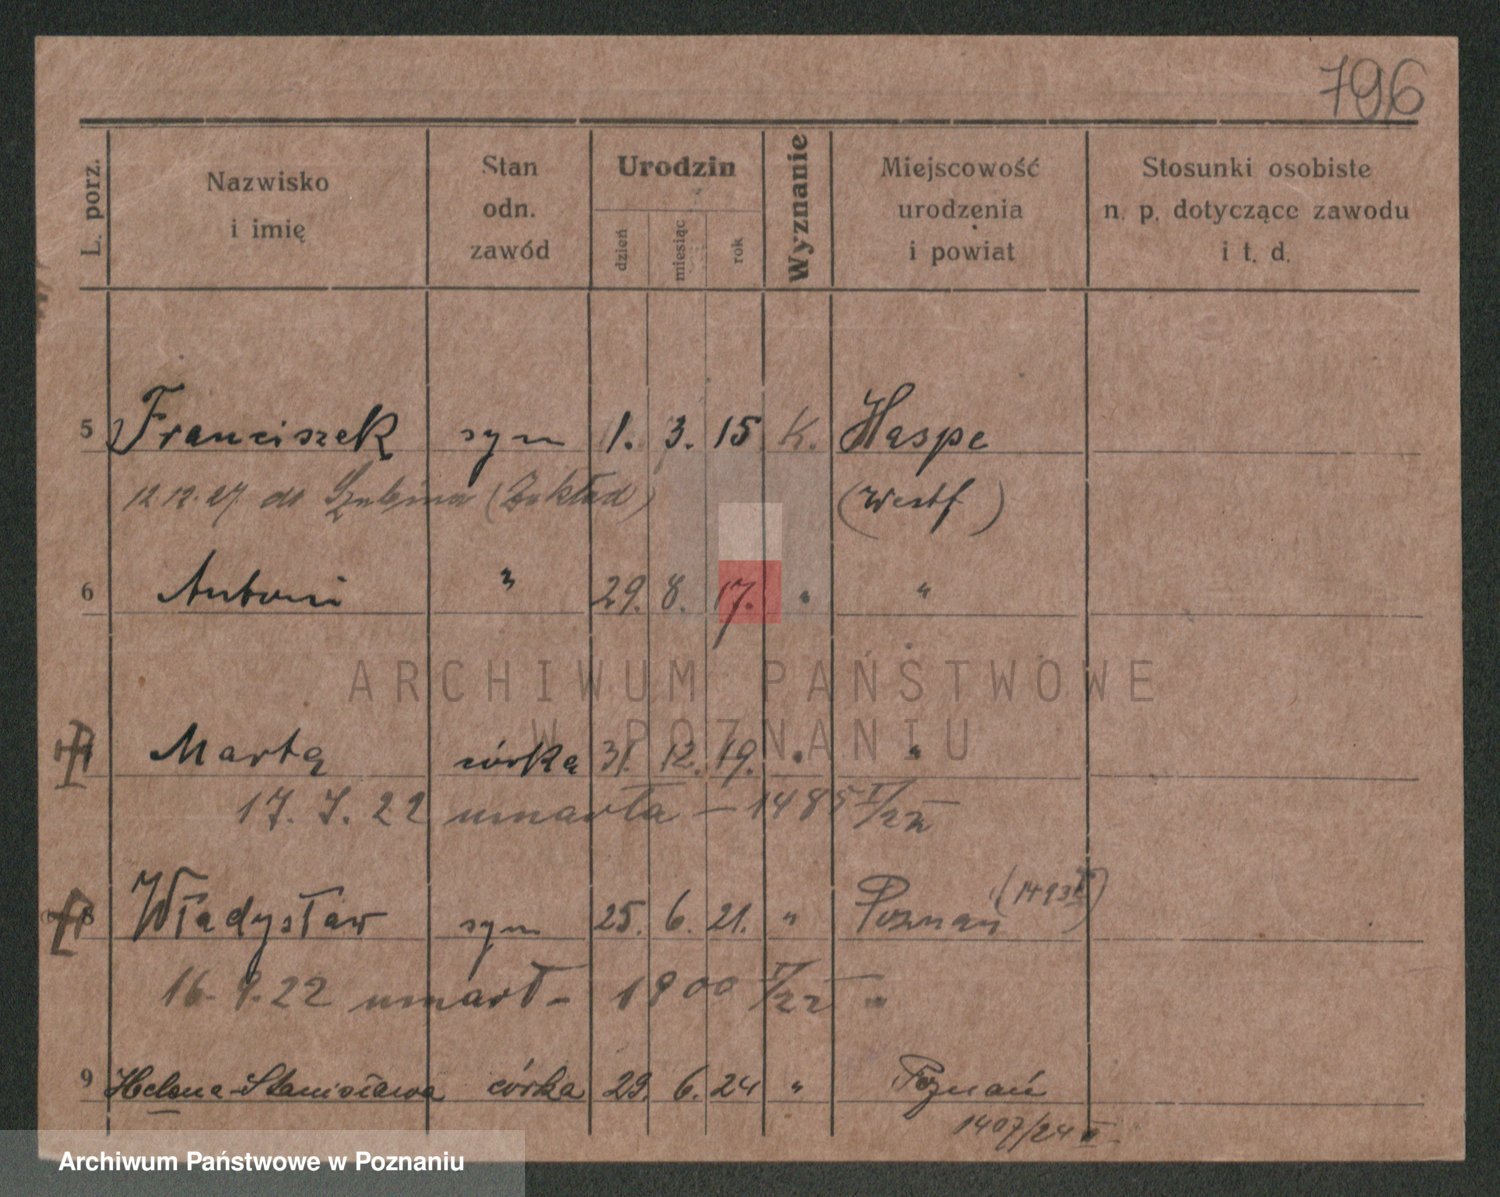 796
L. porz.
Nazwisko
i imię
Stan
odn.
zawód
Urodzin
dzień
miesiąc
rok
Wyznanie
Miejscowość
urodzenia
i powiat
Stosunki osobiste
n. p. dotyczące zawodu
i t. d.
5 Franciszek syn 1. 3. 15 K. Haspe
12.12.27 do Szubina (Zakład) (Westf)
6 Antoni " 29. 8. 17. " "
ARCHIWUM PAŃSTWOWE
W POZNANIU
Marta córka 31. 12. 19. " "
17. 7. 22 umarła – 1485 I/22
8 Władysław syn 25. 6. 21. " Poznań (1493
16. 9. 22 umarł – 1900 I/22 "
9 Helena-Stanisława córka 29. 6. 24 " Poznań
1407/24
Archiwum Państwowe w Poznaniu